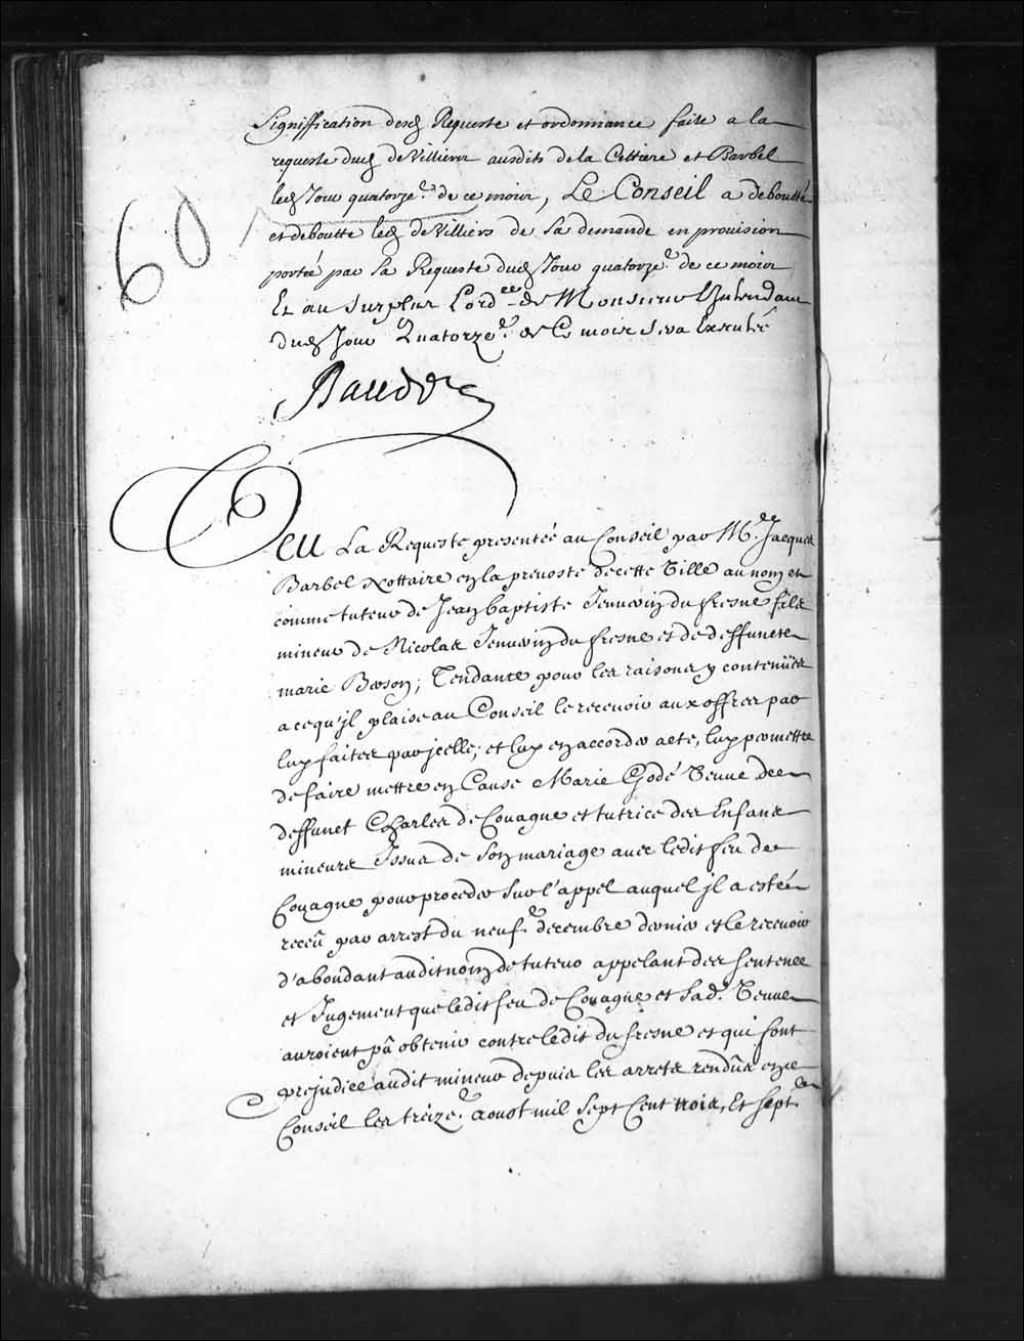 Signiffication desd Requeste et ordonnance faite a la
requeste dud deVilliers ausdits de la Cettiere et Barbel
led Jour quatorze.e de ce mois, Le Conseil a deboutté
et deboutte led deVilliers de sa demande en provision
portée par sa Requeste dud Jour quatorze.e de ce mois
Et au surplus Lord.ce de Monsieur L'Intendant
dud Jour Quatorze.e de Ce mois sera Executée
60
Veu La Requeste presentée au Conseil par M.e Jacques
Barbel Nottaire en la prevosté de cette Ville au nom et
comme tuteur de Jean baptiste Jeuvoin du fresne fils
mineur de Nicolas Jeuvoin du fresne et de deffuncte
marie Berson; Tendante pour les raisons y contenües
a ce qu'jl plaise au Conseil le recevoir aux offres par
luy faites par jcelle; et luy en accorder acte, luy permettre
de faire mettre en Cause Marie Godé Veuve de
deffunct Charles de Couagne et tutrice des Enfans
mineurs Issus de son mariage avec ledit feu de
Couagne pour proceder sur l'appel auquel jl a esté
receû par arrest du neuf.e decembre dernier et le recevoir
d'abondant audit nom de tuteur appelant des sentence
et Jugement que ledit feu de Couagne et sad.e Veuve
auroient pû obtenir contre ledit du fresne et qui sont
prejudice audit mineur depuis les arrets rendûs en ce
Conseil les treize.e aoust mil sept Cent trois, Et sept.